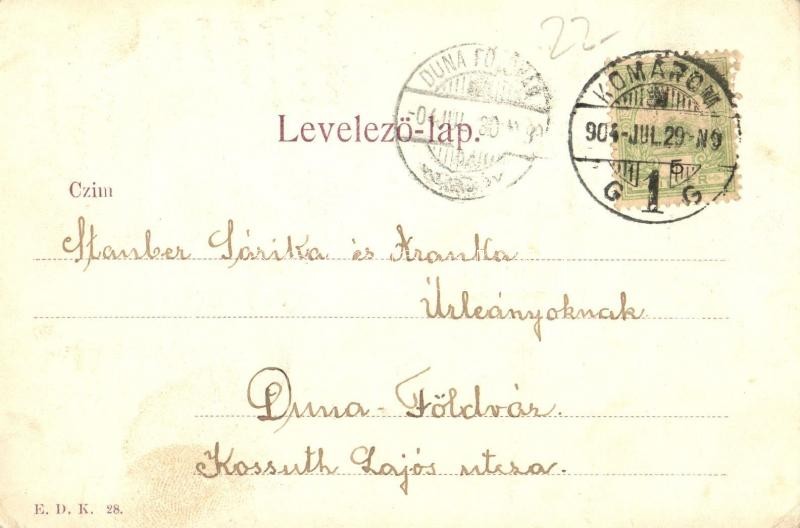 22-
DUNA FÖLDVÁR
KOMÁROM
904-JUL.29-N9
5
G 1 G
Levelező-lap.
Czim
Stauber Sárika és Aranka
Úrleányoknak
Duna-Földvár.
Kossuth Lajós utcza.
E. D. K. 28.